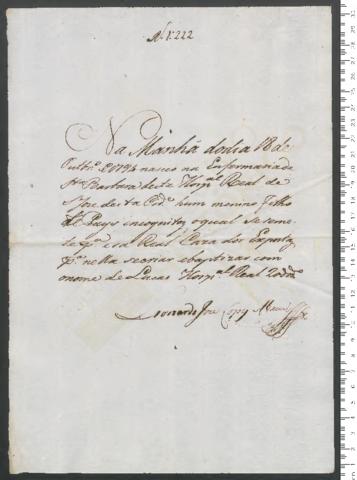 N.º 1:222
Na Manhã do dia 18 de
Outbr.º de 1794 nasceo na Enfermaria de
S.ta Barbara deste Hosp.al Real de
S. Joze desta Cid.e hum menino filho
de Pays incognitos, o qual se reme-
te p.ª a Real Caza dos Expostos
p.ª nella se criar e baptizar com
o nome de Lucas Hosp.al Real
Leonardo Joze